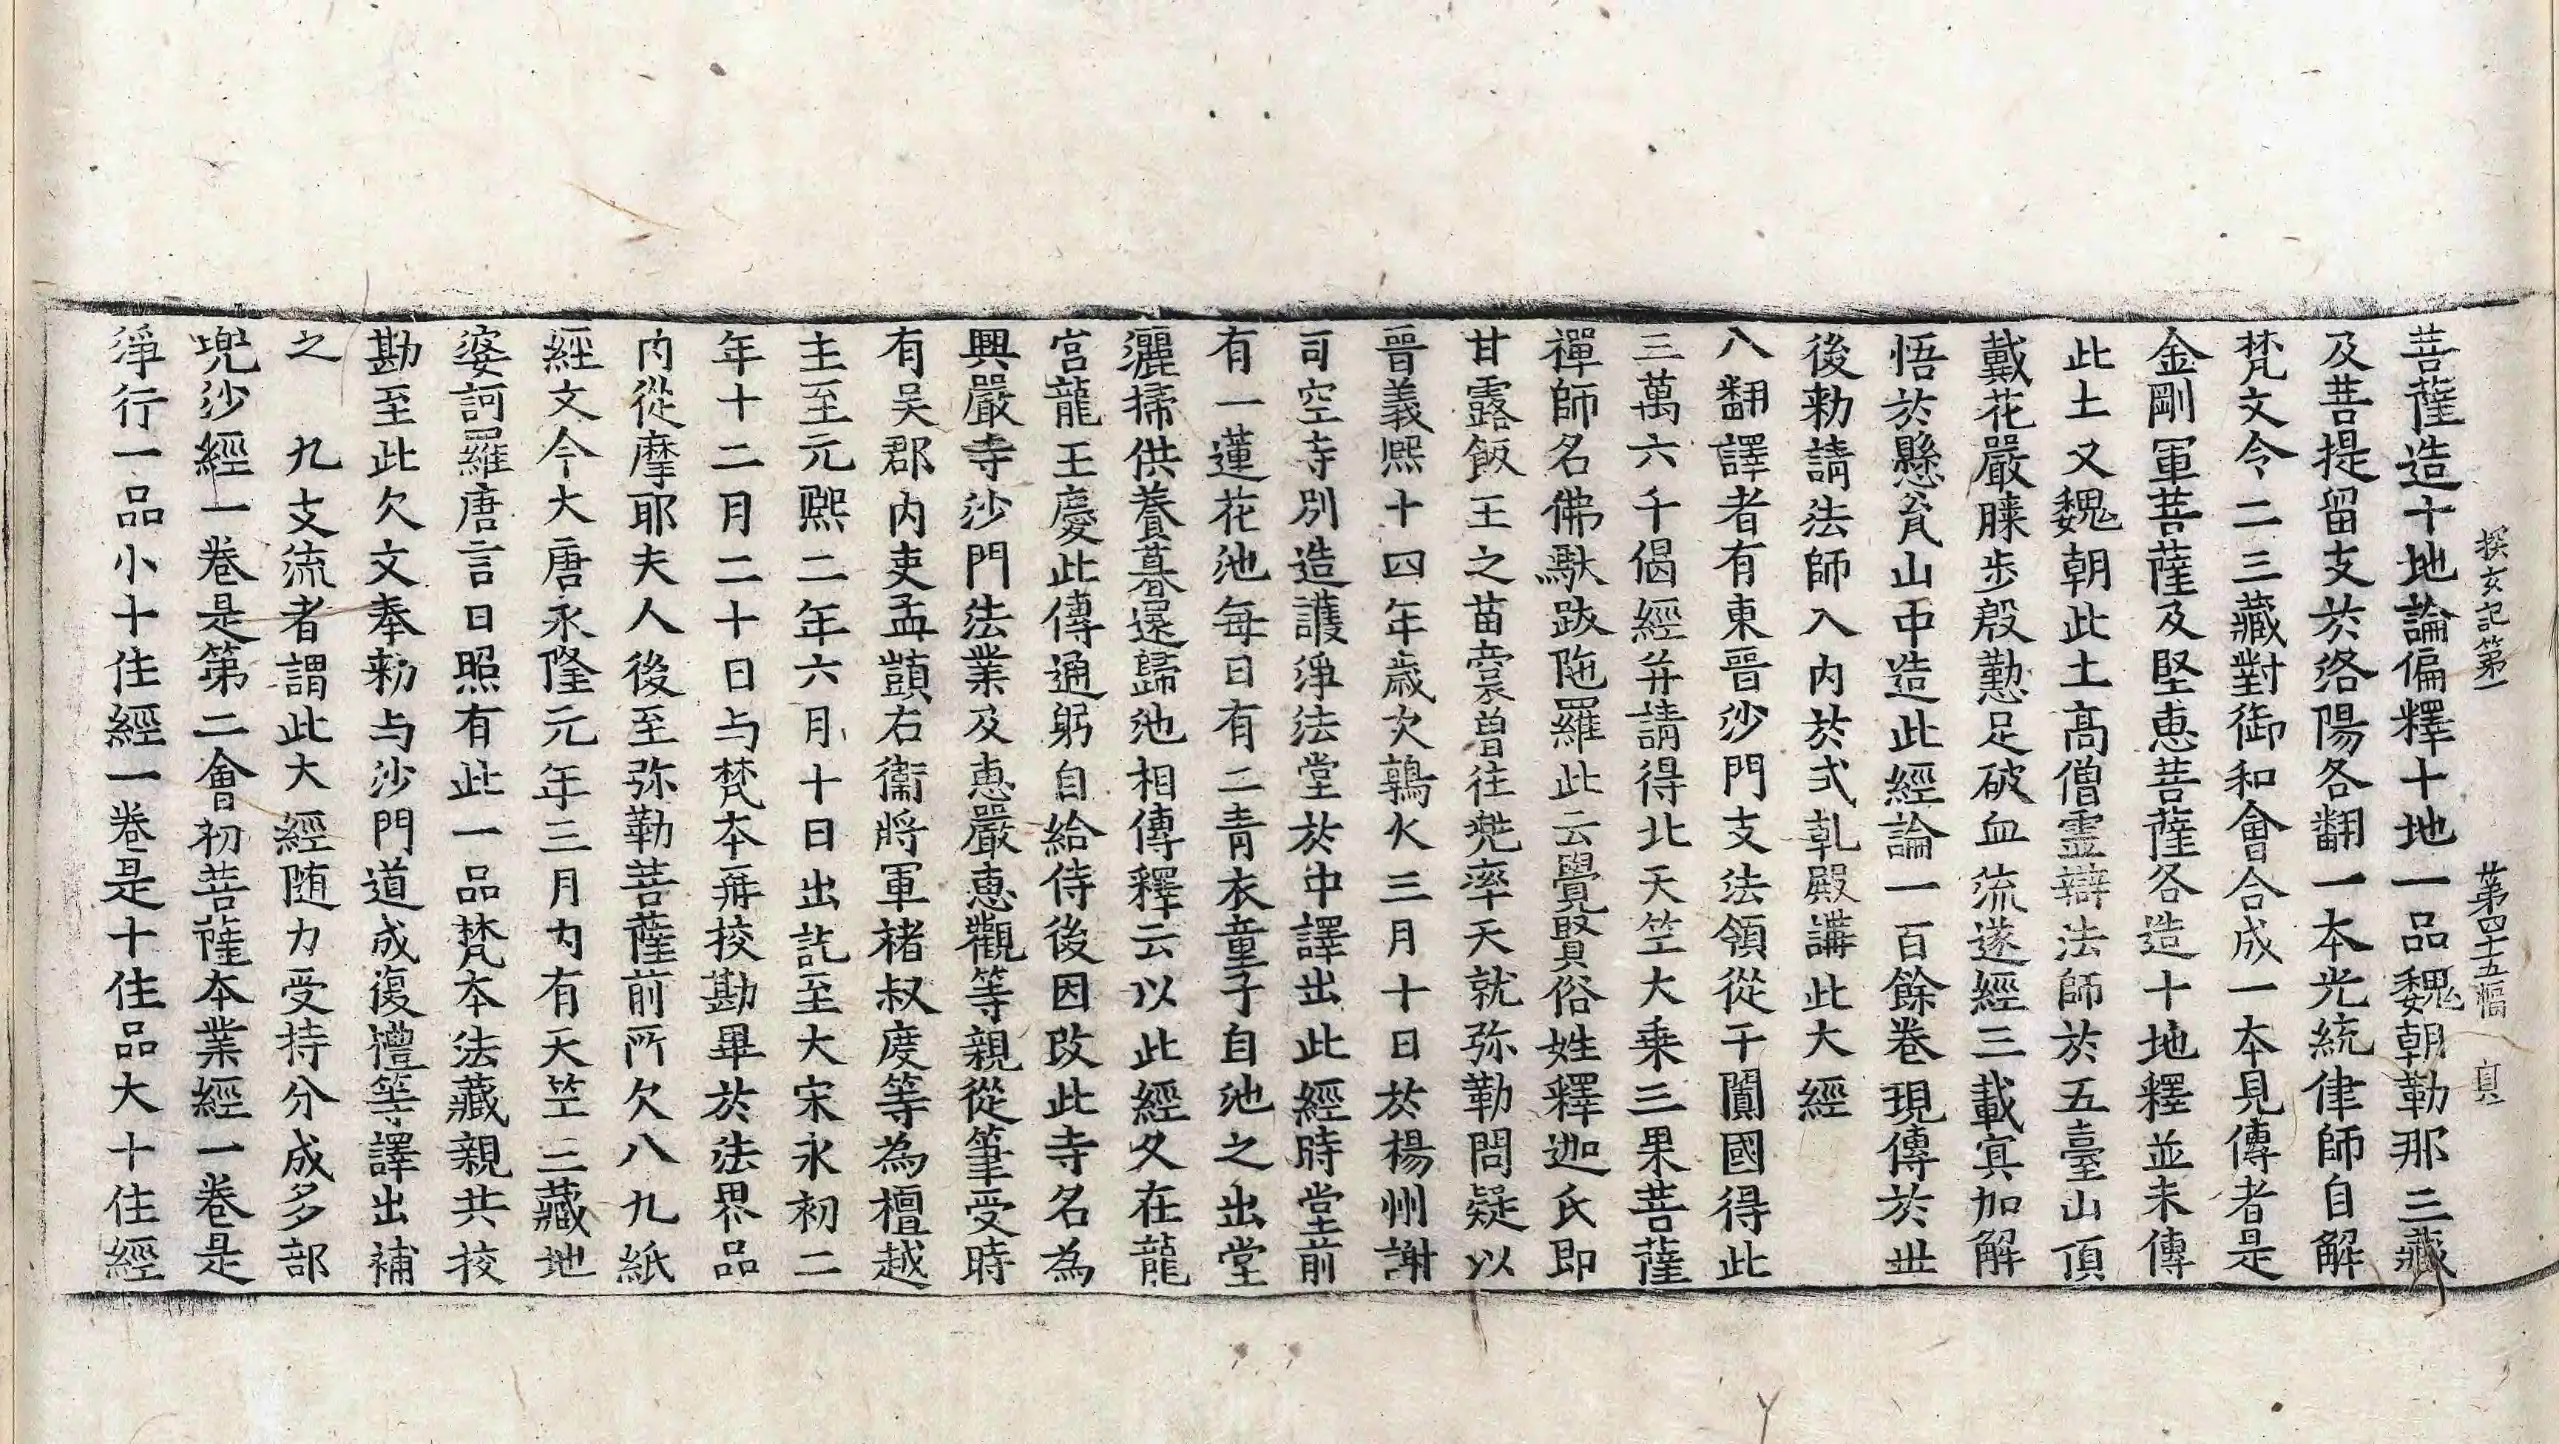 探玄記第一　第四十五幅　真
菩薩造十地論偏釋十地一品魏朝勒那三藏
及菩提留支於洛陽各翻一本光統律師自解
梵文令二三藏對御和會合成一本見傳者是
金剛軍菩薩及堅恵菩薩各造十地釋並未傳
此土又魏朝此土髙僧霊辯法師於五臺山頂
戴花嚴膝步殷懃足破血流遂經三載冥加解
悟於懸瓮山中造此經論一百餘卷現傳於世
後勅請法師入內於式乹殿講此大經
八翻譯者有東晉沙門支法領從于闐國得此
三萬六千偈經并請得北天竺大乗三果菩薩
禪師名佛馱跋陁羅此云覺賢俗姓釋迦氏即
甘露飯王之苗裔曽往兠率天就弥勒問疑以
晉義熙十四年歲次鶉火三月十日於楊州謝
司空寺別造護淨法堂於中譯出此經時堂前
有一蓮花池每日有二青衣童子自池之出堂
灑掃供養暮還歸池相傳釋云以此經久在龍
宮龍王慶此傳通躬自給侍後因改此寺名為
興嚴寺沙門法業及恵嚴恵觀等親從筆受時
有吳郡內吏孟顗右衞將軍褚叔度等為檀越
主至元熙二年六月十日出訖至大宋永初二
年十二月二十日与梵本再挍勘畢於法界品
內從摩耶夫人後至弥勒菩薩前所欠八九紙
經文今大唐永隆元年三月內有天竺三藏地
婆訶羅唐言日照有此一品梵本法藏親共挍
勘至此欠文奉勅与沙門道成復禮等譯出補
之　九支流者謂此大經随力受持分成多部
兠沙經一卷是第二會初菩薩本業經一卷是
淨行一品小十住經一卷是十住品大十住經